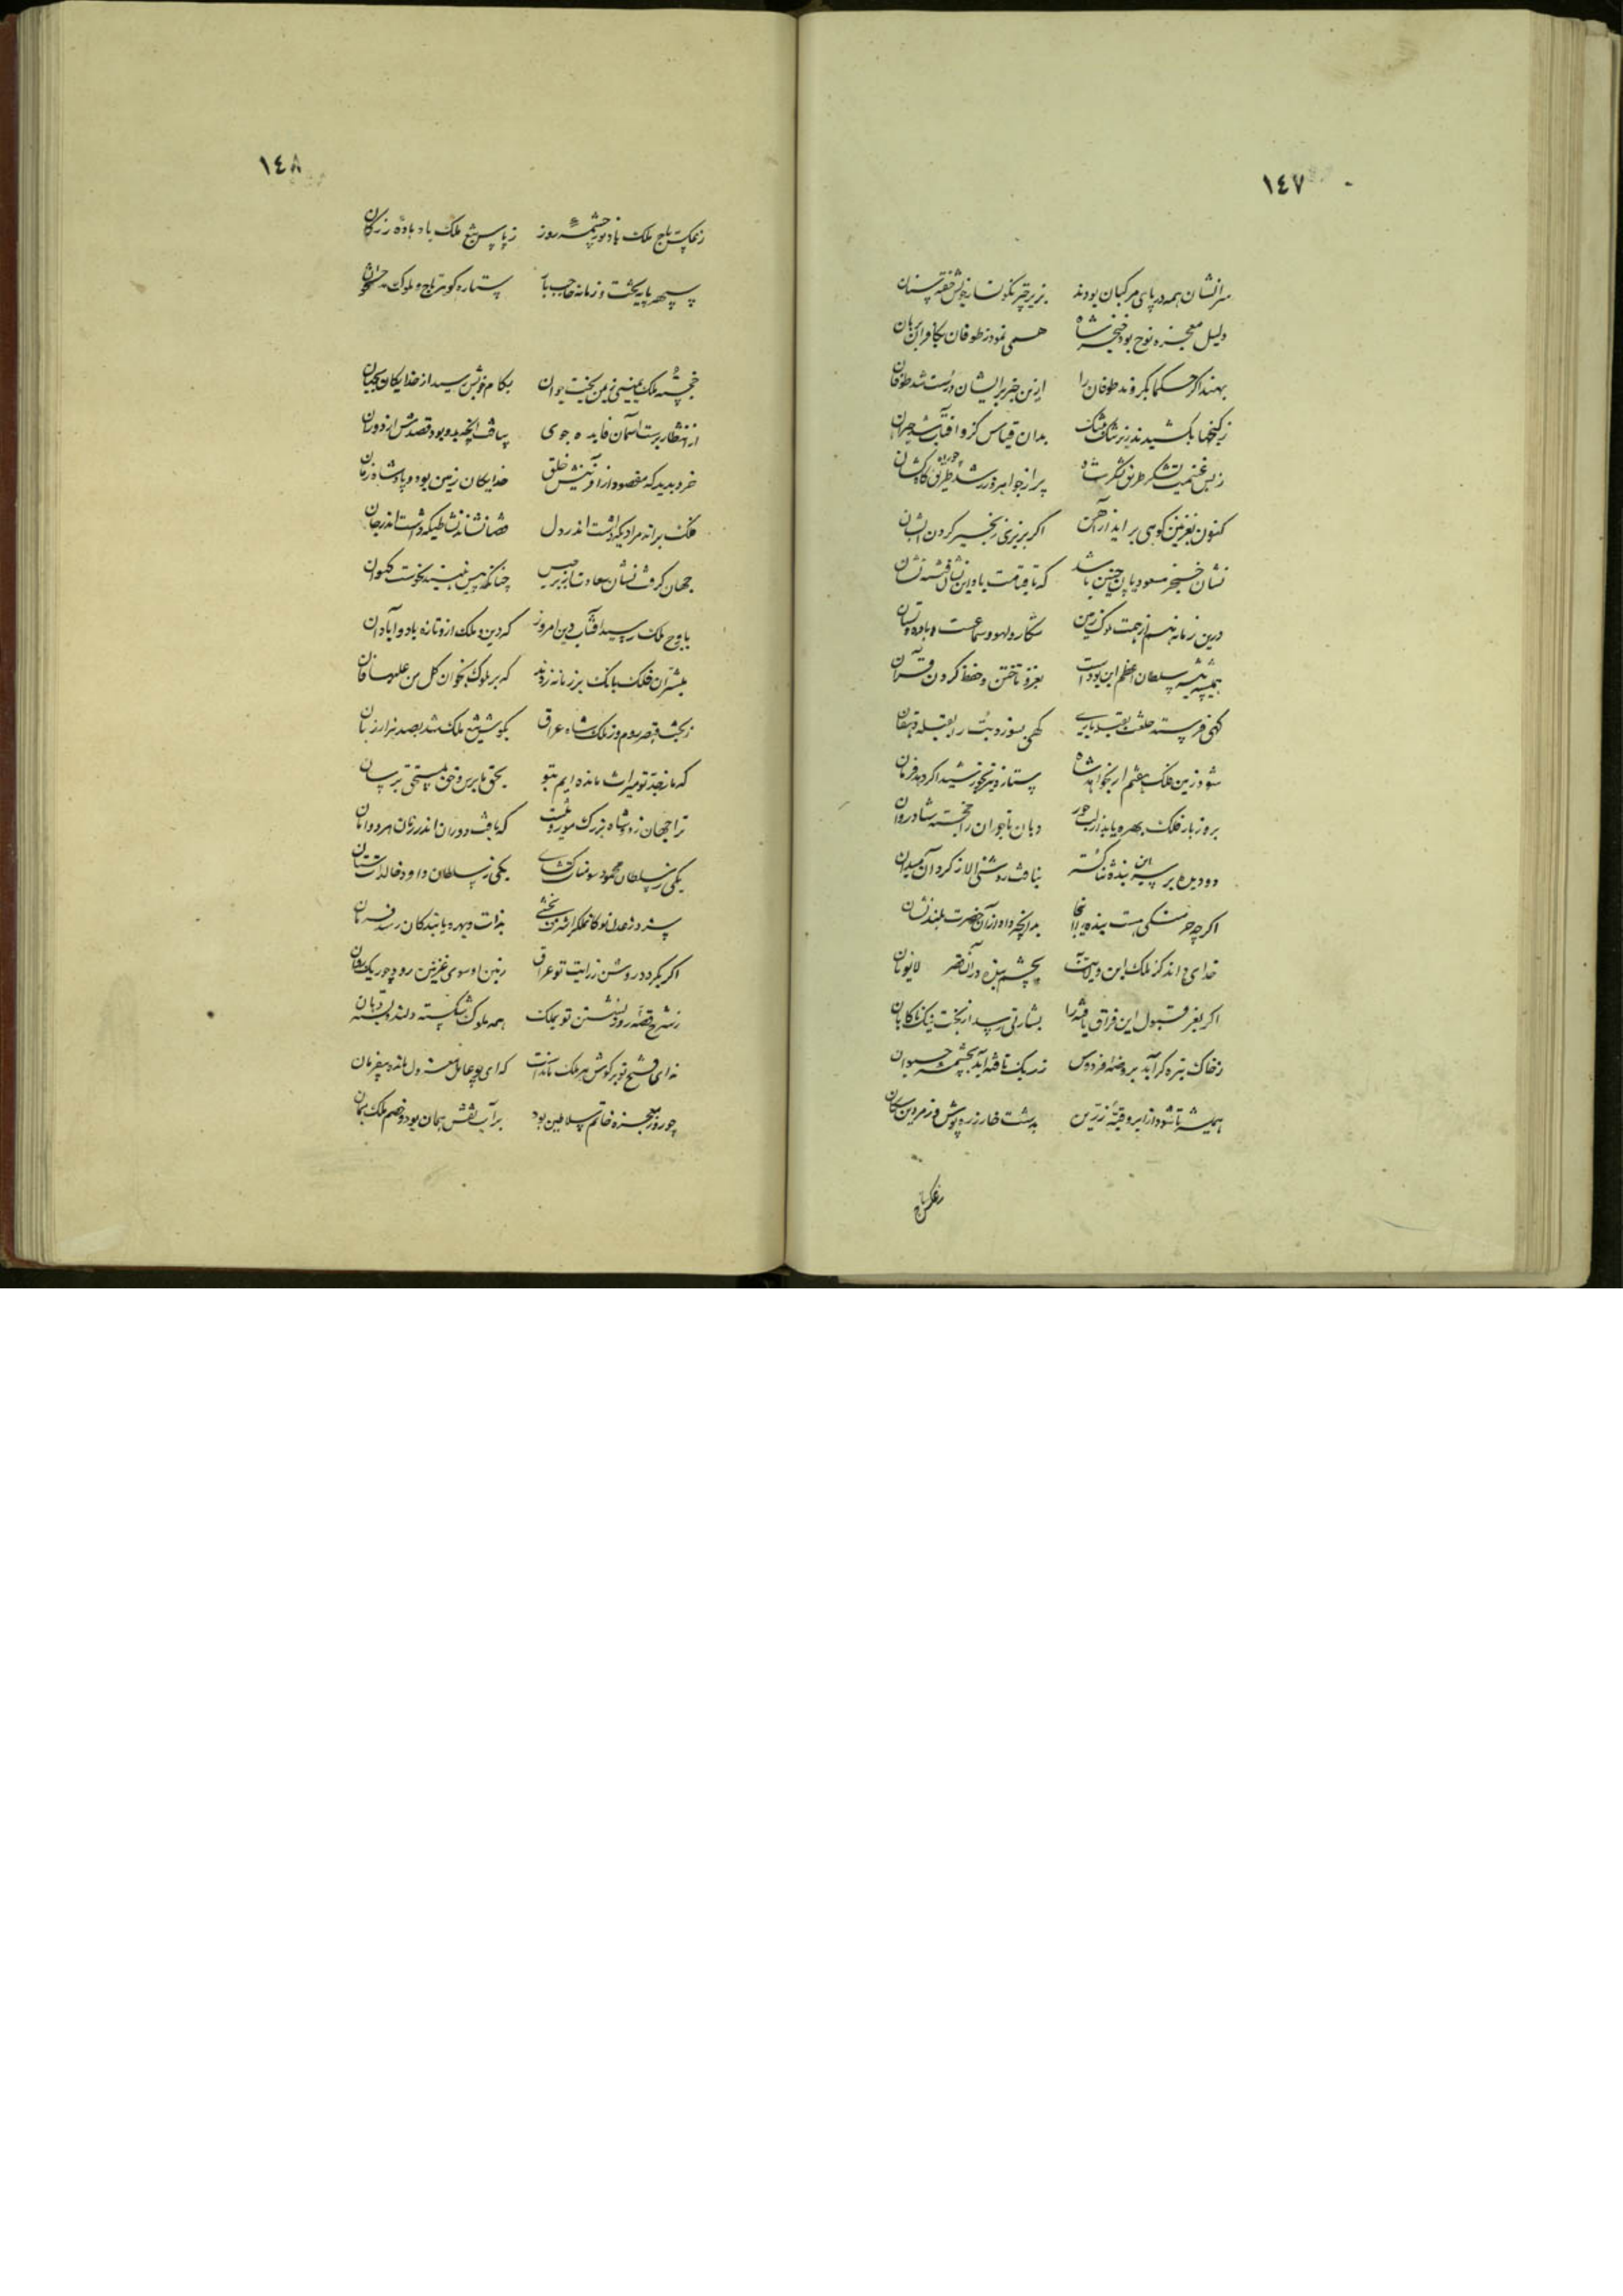 ١٤٧
سرانشان همه در پای مرکبان بودند بزیر چتر نگونسار خویش خفته ستان
دلیل معجزه نوح بود خنجر شاه همی نمود ز طوفان بکافران برهان
بهند اگر حکما نگروند طوفان را ازین خبر بر ایشان درست شد طوفان
ز گنجها بکشیدند زر بدان قیاس کزو آفتاب شد حیران
ز بس غنیمت لشکر طریق لشکر شاه پر از جواهر و زر شد چو راه کاهکشان
کنون بغزنین کوهی بر آید از آهن اگر بریزی زنجیر گردن ایشان
نشان خنجر مسعودیان چنین باشد که تا قیامت باد این نشان فتنه نشان
درین زمانه هم از همت ملوک زمین شکار و لهو و سماعست و باده و بستان
همیشه پیشه سلطان اعظم این بودست بغزو تاختن و حفظ کردن قرآن
گهی فرستد خلعت بقبله باری گهی بسوزد بت را بقبله دهقان
شود زمین فلک هفتم ار بخواهد شاه ستاره خیزد خورشید اگر دهد فرمان
بروز بار فلک بهره یابد از لب حور دهان تاجوران را خجسته شادروان
دو دیده بر سر این بنده ثنا گستر بتافت روشنی الا ز گرد آن میدان
اگر چه حرمتکی هست بنده را اینجا بدانچه داد از آن حضرت بلند نشان
خدای داند کز ملک این ولایت بچشم بنده در آن قصر
اگر بعز قبول این فراق یافته را بشارتی رسد از بخت نیک ناگاهان
ز خاک تیره گر آید بروضه فردوس ز ریگ تافته آید بچشمه حیوان
همیشه تا شود از ابر و قبه زرین بدشت خار زره پوش و زمردین
زعکس تاج

١٤٨
ز عکس تاج ملک باد نور چشمه روز ز پاس تیغ ملک باد باده
سپهر پایه تخت و زمانه حاجب بار ستاره گوهر تاج و ملوک مدحت خوان
خجسته ملک یمینی ز یمن بخت جوان بکام خویش رسید از خدایگان جهان
از انتظار برست آسمان فایده جوی بیافت آنچه بدو بود قصدش از دوران
خرد بدید که مقصود از آفرینش خلق خدایگان زمین بود و پادشاه زمان
فلک براند مرادیکه داشت اندر دل قضا نشاند نشاطیکه داشت اندر جان
جهان گرفت نشان سعادت از برجیس چنانکه بیش نبیند نحوست کیوان
باوج ملک رسید آفتاب دین امروز که دین و ملک ازو تازه باد و آبادان
مبشران فلک بانگ بر زمانه زدند که بر ملوک بخوان کل من علیها فان
ز تخت قیصر روم و ز ملک شاه عراق بگوش تیغ ملک شد بصد هزار زبان
که ما ز جد تو میراث مانده ایم بتو بحق ما برس و حق بمستحق برسان
ترا جهان ز دو شاه بزرگ موروثست که یافت دوران اندر زمان هر دو امان
یکی ز سلطان محمود سومنات گشای یکی ز سلطان داود خالدات ستان
سزد ز عدل تو بخشی بذات و بهره یابندگان رسد فرمان
اگر بگردد روشن ز رایت تو عراق زمین او سوی غزنین رود چو ریگ روان
ز شرح قصه روز نشستن تو بملک همه ملوک شکسته دلند و بسته دهان
ندای فتح تو بر گوش هر ملک ماندست که ای چو عامل معزول مانده بیفرمان
چو روز معجزه خاتم سلاطین بود بر آب نقش همان بود و خصم ملک همان